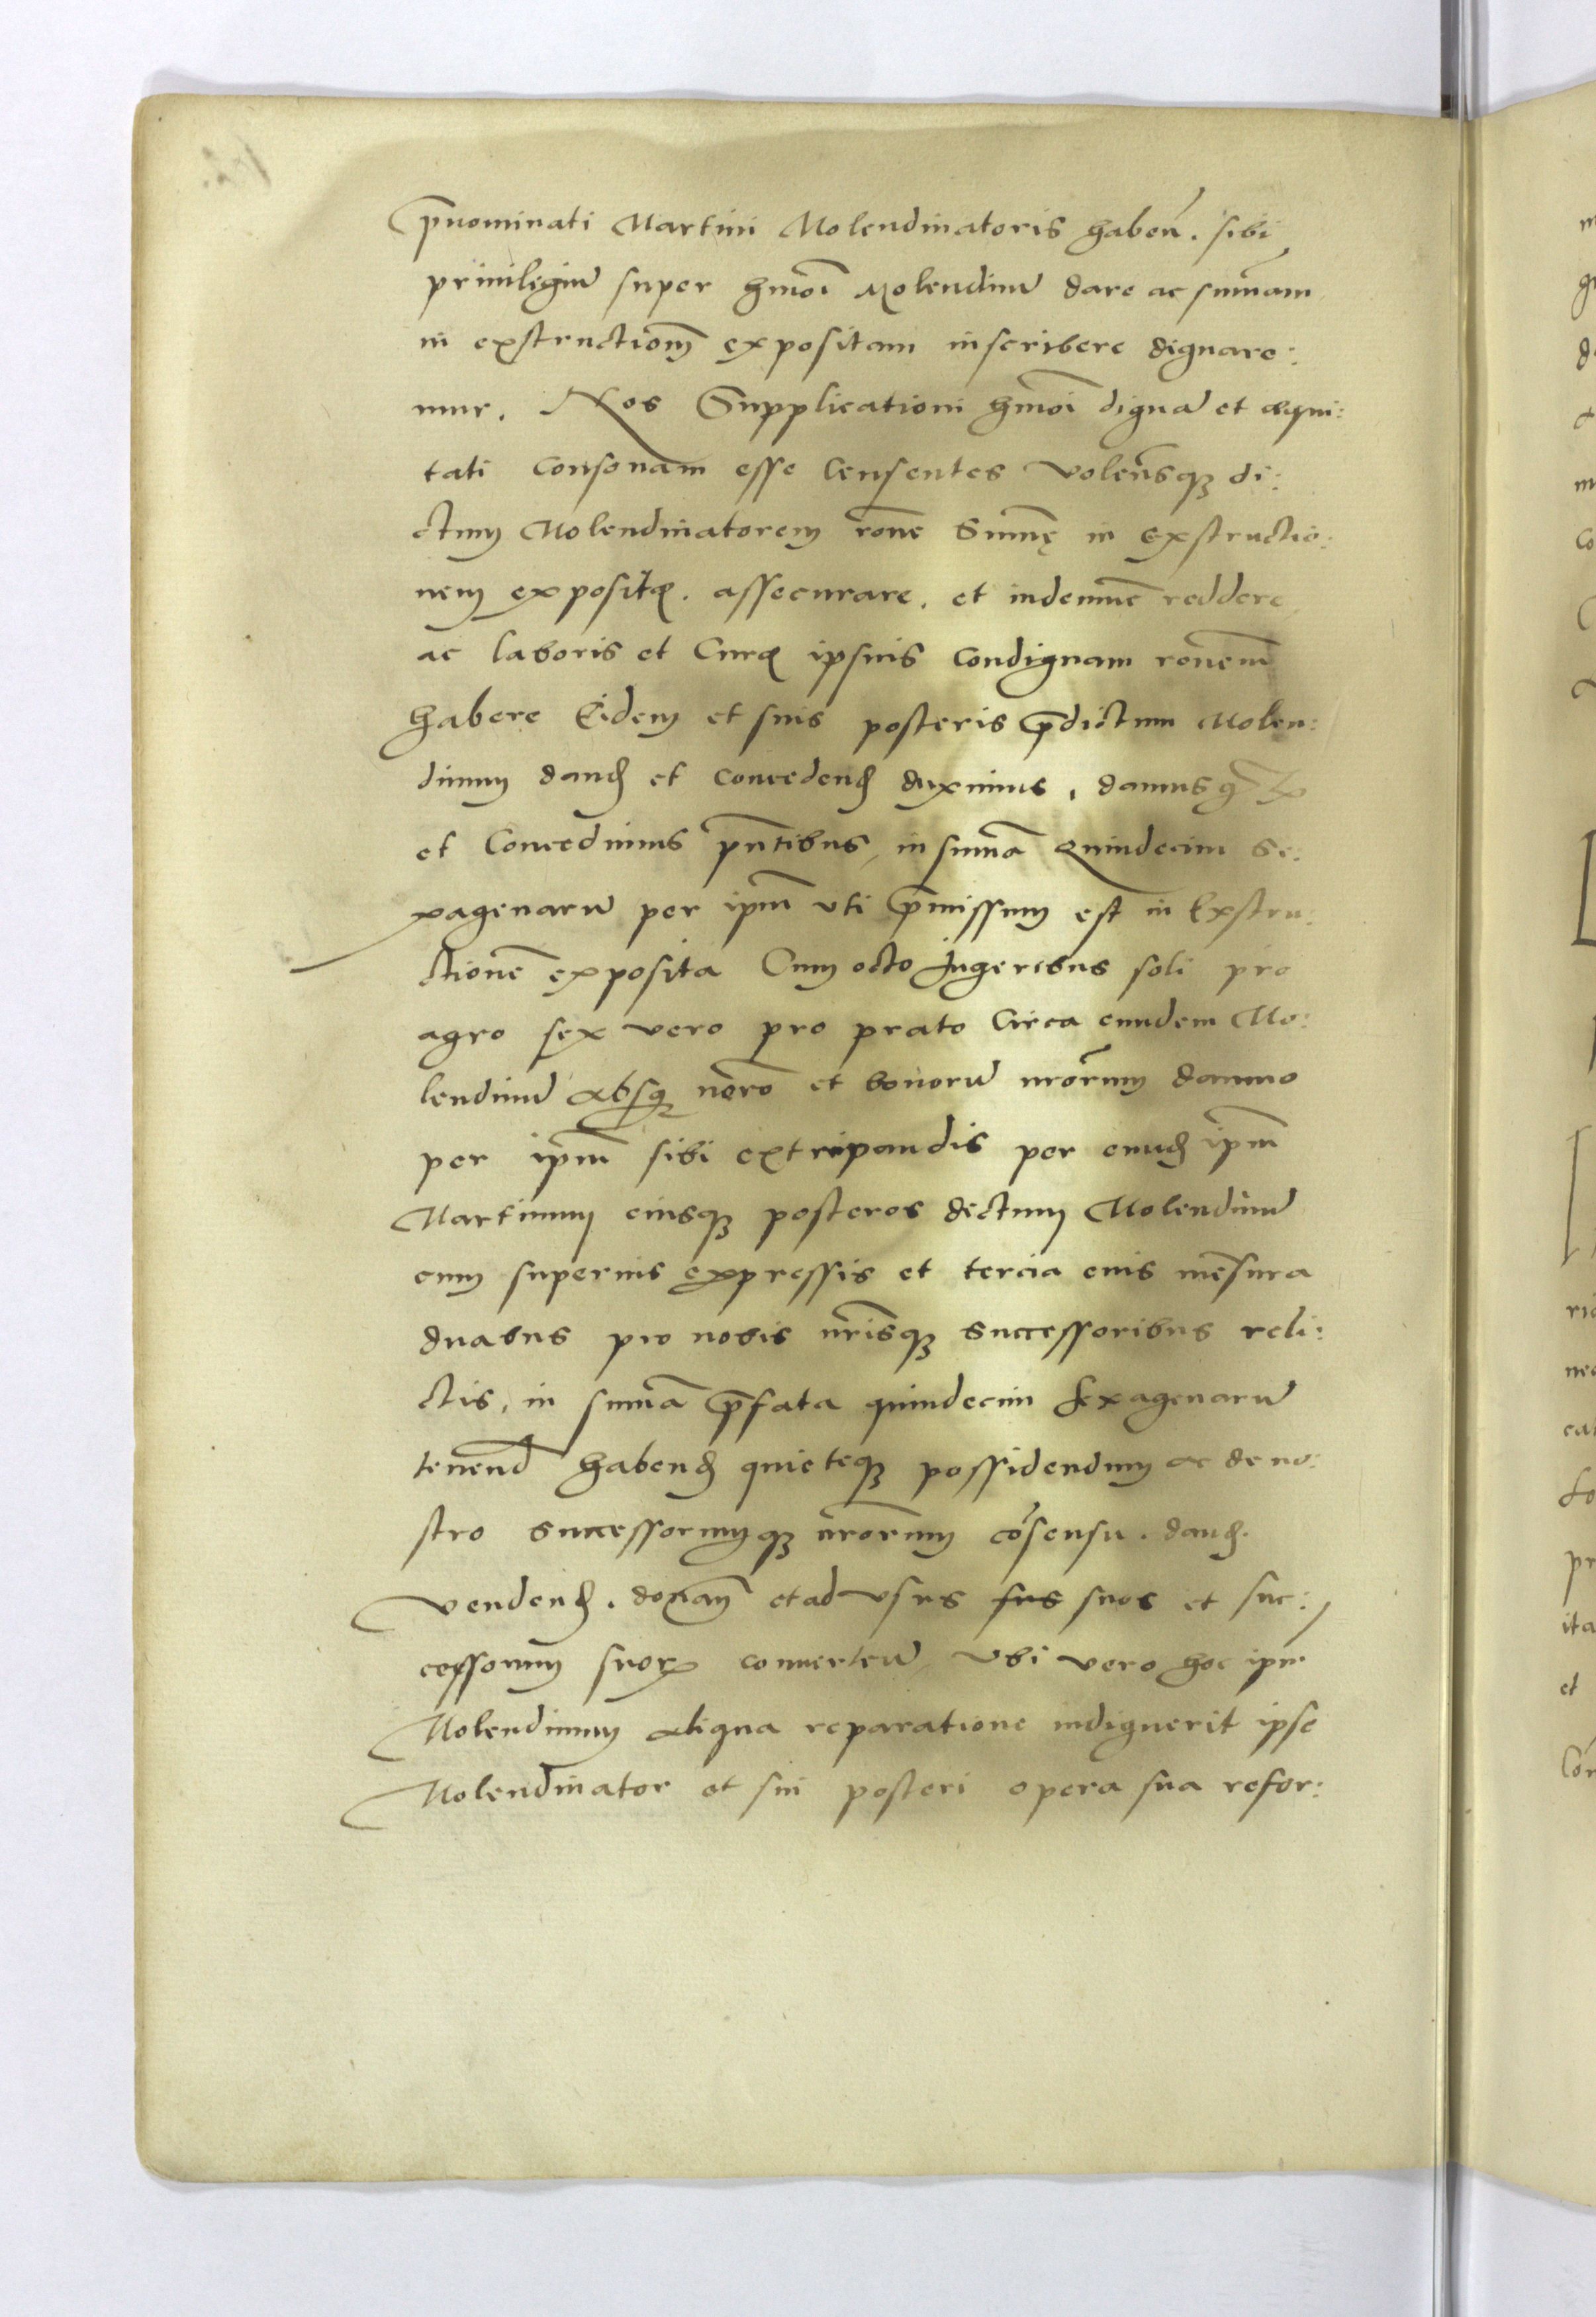 p̄nominati Martini Molendinatoris haben̄. sibi
priuilegiū super hmōi Molendinū dare ac summam
in exstructionē expositam inscribere dignare:
mur. Nos Supplicationi hmōi dignā et aequi:
tati consonam esse Censentes volen̄sqȝ di:
ctum Molendinatorem rōne Summę in exstructio:
nem expositę. assecurare. et indemnē reddere
ac laboris et Curę ipsius condignam rōnem
habere Eidem et suis posteris p̄dictum Molen:
dinum dand̄ et concedend̄ duximus, damusqȝ
et Concedimus p̄ntibus, in summa Quindecim Se:
xagenarū per ipm̄ vti p̄missum est in Exstru:
ctionē exposita Cum octo Jugeribus soli pro
agro sex vero pro prato Circa eundem Mo:
lendinū absqȝ nēro et bonorū nrōrum damno
per ipm̄ sibi extirpandis per eund̄ ipm̄
Martinum eiusqȝ posteros dictum Molendinū
cum superius expressis et tercia eius mēsura
duabus pro nobis nr̄isqȝ Successoribus reli:
ctis, in summa p̄fata quindecim sexagenarū
tenend̄ habend̄ quieteqȝ possidendum ac de no:
stro Successorumqȝ nrōrum cōsensu. dand̄.
Vendend̄. donan̄ et ad vsus sus suos et suc:
cessorum suorꝝ conuertēn, Vbi vero hoc ipm̄
Molendinum aliqua reparatione indiguerit ipse
Molendinator et sui posteri opera sua refor: